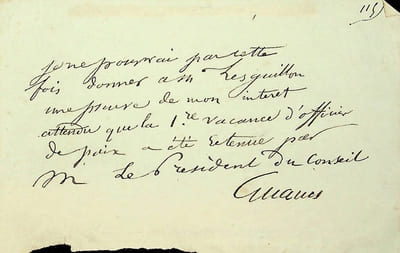 115)
je ne pourrai par cette
fois donner a M Lesguillon
une preuve de mon interet
attendu que la 1.re vacance d'officier
de paix a été retenue par
M Le President du Conseil